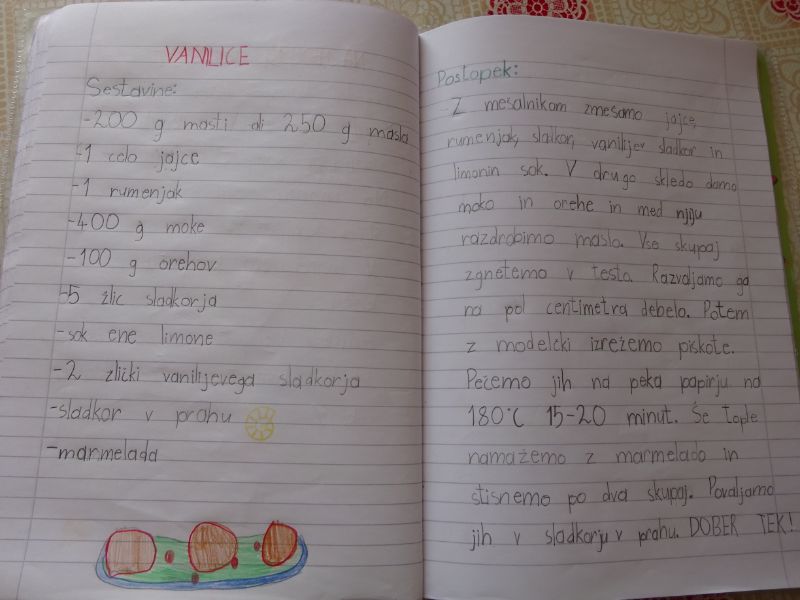 VANILICE
Sestavine:
-200 g masti ali 250 g masla
-1 celo jajce
-1 rumenjak
-400 g moke
-100 g orehov
-5 žlic sladkorja
-sok ene limone
-2 žlički vanilijevega sladkorja
-sladkor v prahu
-marmelada
Postopek:
Z mešalnikom zmešamo jajce,
rumenjak, sladkor, vanilijev sladkor in
limonin sok. V drugo skledo damo
moko in orehe in med njiju
razdrobimo maslo. Vse skupaj
zgnetemo v testo. Razvaljamo ga
na pol centimetra debelo. Potem
z modelčki izrežemo piškote.
Pečemo jih na peka papirju na
180°C 15-20 minut. Še tople
namažemo z marmelado in
stisnemo po dva skupaj. Povaljamo
jih v sladkorju v prahu. DOBER TEK!